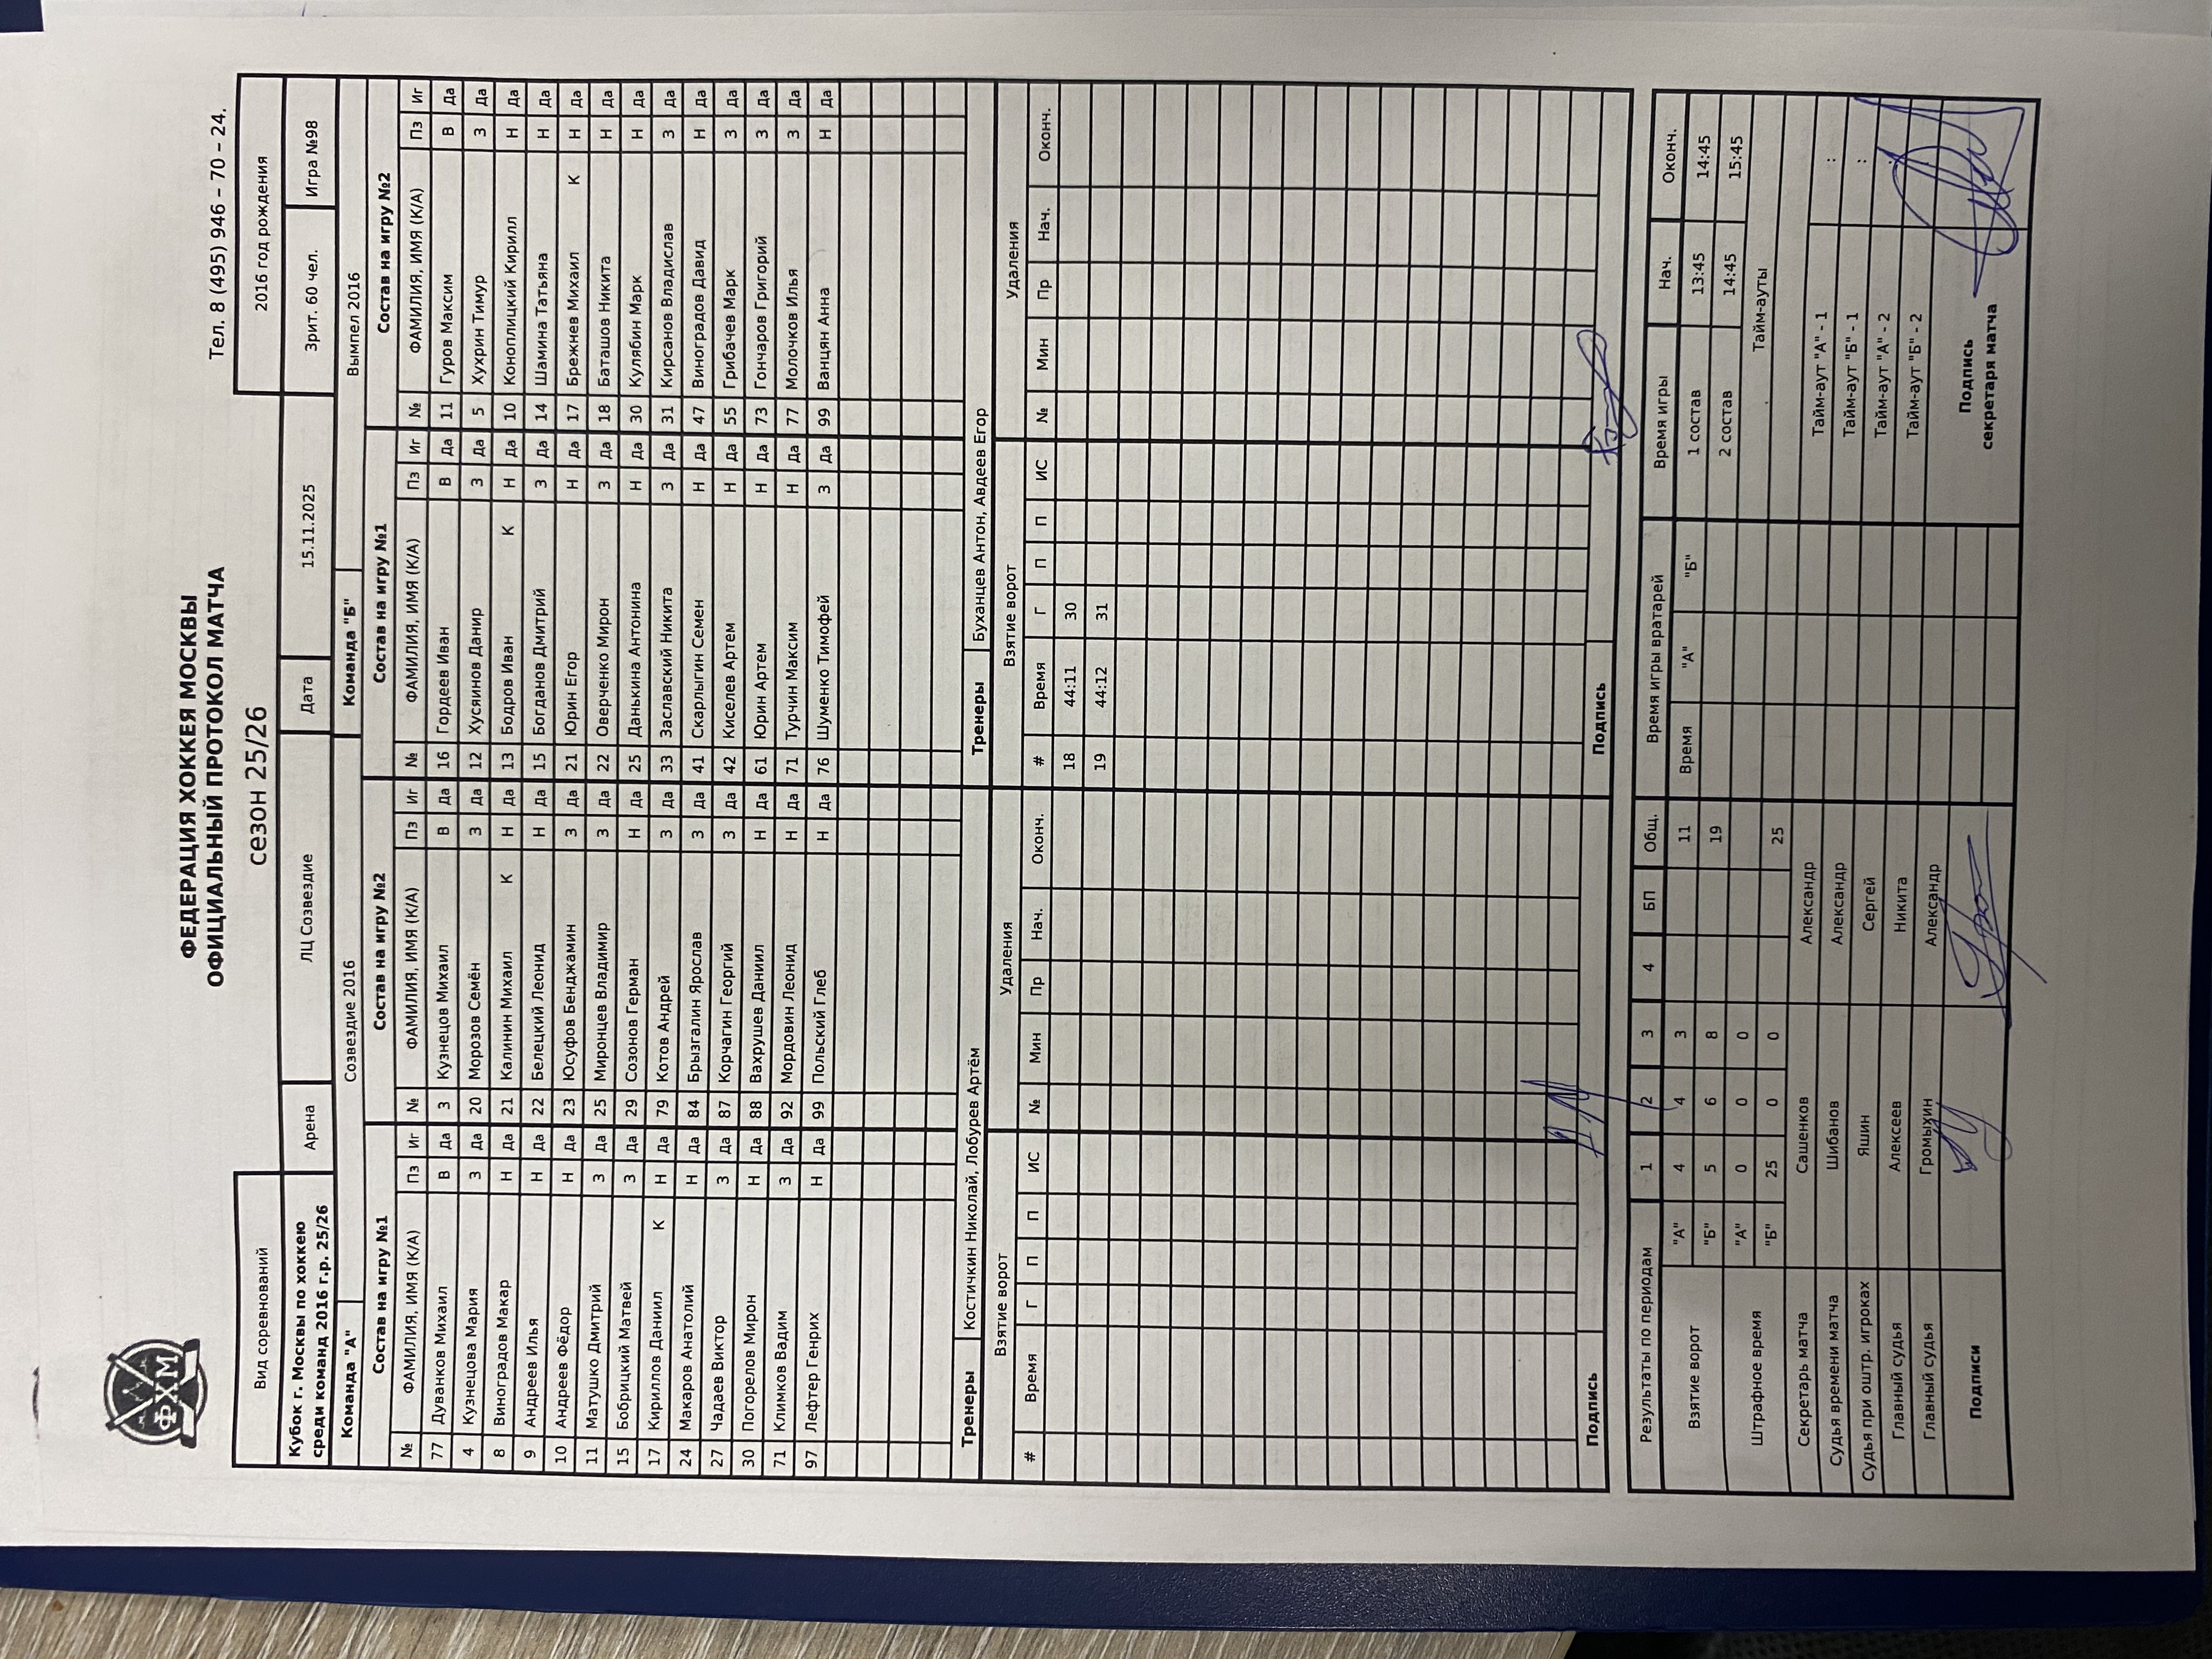 ФХМ
ФЕДЕРАЦИЯ ХОККЕЯ МОСКВЫ
ОФИЦИАЛЬНЫЙ ПРОТОКОЛ МАТЧА
Тел. 8 (495) 946 – 70 – 24.
сезон 25/26
Вид соревнований 2016 год рождения
Кубок г. Москвы по хоккею
среди команд 2016 г.р. 25/26
Арена ЛЦ Созвездие Дата 15.11.2025 Зрит. 60 чел. Игра №98
Команда "А" Созвездие 2016 Команда "Б" Вымпел 2016
Состав на игру №1 Состав на игру №2 Состав на игру №1 Состав на игру №2
№ ФАМИЛИЯ, ИМЯ (К/А) Пз Иг № ФАМИЛИЯ, ИМЯ (К/А) Пз Иг № ФАМИЛИЯ, ИМЯ (К/А) Пз Иг № ФАМИЛИЯ, ИМЯ (К/А) Пз Иг
77 Дуванков Михаил В Да 3 Кузнецов Михаил В Да 16 Гордеев Иван В Да 11 Гуров Максим В Да
4 Кузнецова Мария З Да 20 Морозов Семён З Да 12 Хусяинов Данир З Да 5 Хухрин Тимур З Да
8 Виноградов Макар Н Да 21 Калинин Михаил К Н Да 13 Бодров Иван К Н Да 10 Коноплицкий Кирилл Н Да
9 Андреев Илья Н Да 22 Белецкий Леонид Н Да 15 Богданов Дмитрий З Да 14 Шамина Татьяна Н Да
10 Андреев Фёдор Н Да 23 Юсуфов Бенджамин З Да 21 Юрин Егор Н Да 17 Брежнев Михаил К Н Да
11 Матушко Дмитрий З Да 25 Миронцев Владимир З Да 22 Оверченко Мирон З Да 18 Баташов Никита Н Да
15 Бобрицкий Матвей З Да 29 Созонов Герман Н Да 25 Данькина Антонина Н Да 30 Кулябин Марк Н Да
17 Кириллов Даниил К Н Да 79 Котов Андрей З Да 33 Заславский Никита З Да 31 Кирсанов Владислав З Да
24 Макаров Анатолий Н Да 84 Брызгалин Ярослав З Да 41 Скарлыгин Семен Н Да 47 Виноградов Давид Н Да
27 Чадаев Виктор З Да 87 Корчагин Георгий З Да 42 Киселев Артем Н Да 55 Грибачев Марк З Да
30 Погорелов Мирон Н Да 88 Вахрушев Даниил Н Да 61 Юрин Артем Н Да 73 Гончаров Григорий З Да
71 Климков Вадим З Да 92 Мордовин Леонид Н Да 71 Турчин Максим Н Да 77 Молочков Илья З Да
97 Лефтер Генрих Н Да 99 Польский Глеб Н Да 76 Шуменко Тимофей З Да 99 Ванцян Анна Н Да
Тренеры Костичкин Николай, Лобурев Артём Тренеры Буханцев Антон, Авдеев Егор
Взятие ворот Удаления Взятие ворот Удаления
# Время Г П П ИС № Мин Пр Нач. Оконч. # Время Г П П ИС № Мин Пр Нач. Оконч.
18 44:11 30
19 44:12 31
Подпись Подпись
Результаты по периодам 1 2 3 4 БП Общ. Время игры вратарей Время игры Нач. Оконч.
Взятие ворот "А" 4 4 3 11 Время "А" "Б" 1 состав 13:45 14:45
"Б" 5 6 8 19 2 состав 14:45 15:45
Штрафное время "А" 0 0 0 Тайм-ауты
"Б" 25 0 0 25
Секретарь матча Сашенков Александр Тайм-аут "А" - 1 :
Судья времени матча Шибанов Александр Тайм-аут "Б" - 1 :
Судья при оштр. игроках Яшин Сергей Тайм-аут "А" - 2
Главный судья Алексеев Никита Тайм-аут "Б" - 2
Главный судья Громыхин Александр
Подписи Подпись
секретаря матча